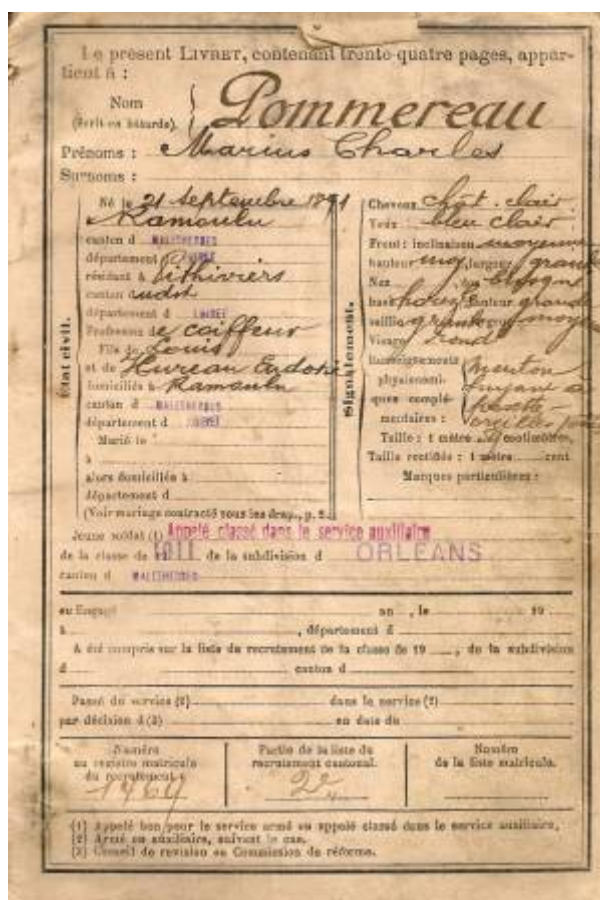 Le présent LIVRET, contenant trente-quatre pages, appar-
tient à :
Nom
(écrit en bâtarde).
Pommereau
Prénoms : Marius Charles
Surnoms :
État civil.
Né le 21 Septembre 1891
Ramoulu
canton d MALESHERBES
département d LOIRET
résidant à Pithiviers
canton dudit
département d LOIRET
Profession de coiffeur
Fils de Louis
et de Hureau Eudoxie
domiciliés à Ramoulu
canton d MALESHERBES
département d LOIRET
Marié le
à
alors domiciliée à
département d
(Voir mariage contracté sous les drap., p. 2.
Signalement.
Cheveux chât. clair
Yeux bleu clair
Front : inclinaison moyenne
hauteur moy largeur grande
Nez
base horiz hauteur grande
saillie
Visage rond
Renseignements
physionomi-
ques complé-
mentaires :
menton
fuyant à
fossette
oreilles
Taille : 1 mètre centimètres,
Taille rectifiée : 1 mètre cent
Marques particulières :
Jeune soldat (1) Appelé classé dans le service auxiliaire
de la classe de 1911 de la subdivision d ORLÉANS
canton d MALESHERBES
ou Engagé an , le 19
à , département d
A été compris sur la liste de recrutement de la classe de 19 , de la subdivision
d canton d
Passé du service (2) dans le service (2)
par décision d (3) en date du
Numéro
au registre matricule
du recrutement :
1464
Partie de la liste du
recrutement cantonal.
Numéro
de la liste matricule.
(1) Appelé bon pour le service armé ou appelé classé dans le service auxiliaire.
(2) Armé ou auxiliaire, suivant le cas.
(3) Conseil de revision ou Commission de réforme.